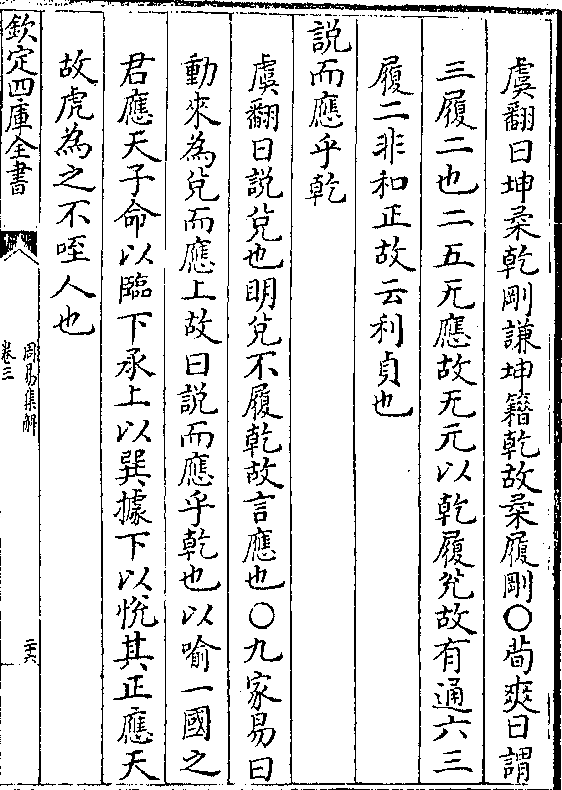 虞翻曰坤柔乾剛謙坤籍乾故柔履剛○荀爽曰謂
三履二也二五无應故无元以乾履兊故有通六三
履二非和正故云利貞也
說而應乎乾
虞翻曰說兊也明兊不履乾故言應也○九家易曰
動來為兊而應上故曰說而應乎乾也以喻一國之
君應天子命以臨下承上以巽據下以悅其正應天
故虎為之不咥人也
欽定四庫全書
周易集解
卷三
二六